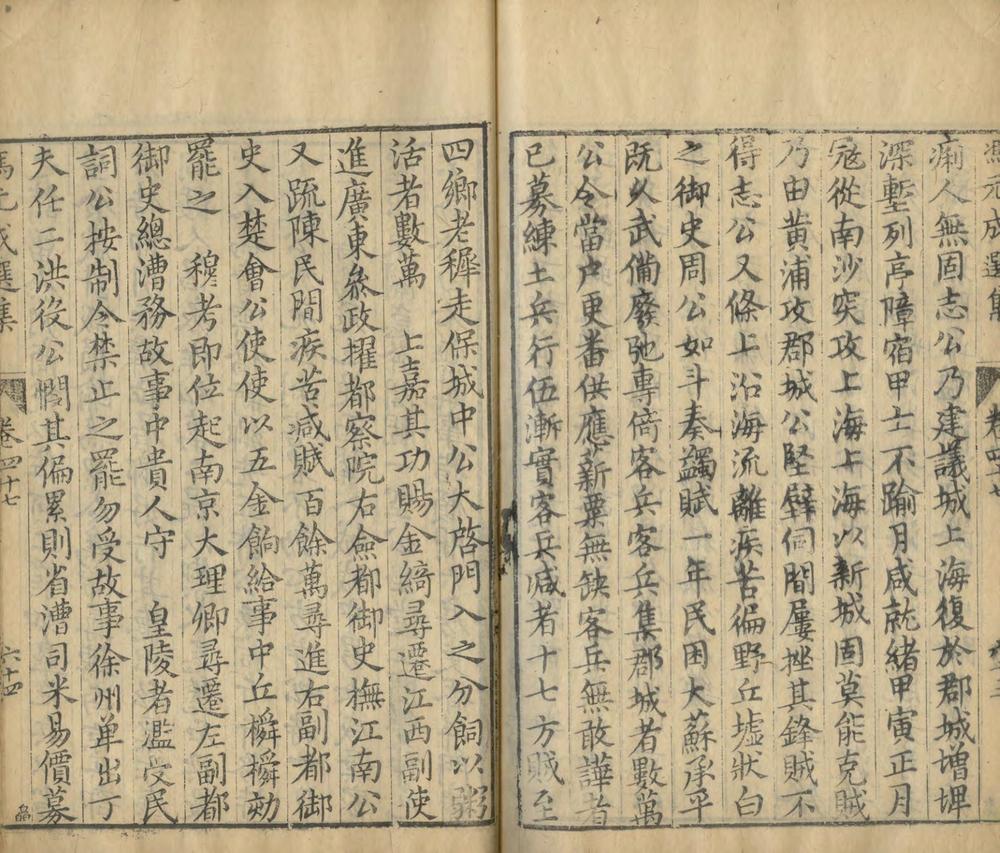 馮元成選集
卷四十七
痢人無固志公乃建議城上海復於郡城增埤
深塹列亭障宿甲士不踰月咸就緒甲寅正月
寇從南沙突攻上海上海以新城固莫能克賊
乃由黃浦攻郡城公堅壁伺間屢挫其鋒賊不
得志公又條上沿海流離疾苦徧野丘墟狀白
之御史周公如斗奏蠲賦一年民困大蘇承平
既久武備廢弛專倚客兵客兵集郡城者數萬
公令當户更番供應新粟無缺客兵無敢譁者
已募練土兵行伍漸實客兵减者十七方賊至
四鄉老穉走保城中公大啓門入之分餇以粥
活者數萬 上嘉其功賜金綺尋遷江西副使
進廣東叅政擢都察院右僉都御史撫江南公
又疏陳民間疾苦减賦百餘萬尋進右副都御
史入楚會公使使以五金餉給事中丘橓橓劾
罷之 穆考即位起南京大理卿尋遷左副都
御史總漕務故事中貴人守 皇陵者濫受民
詞公按制令禁止之罷勿受故事徐州单出丁
夫任二洪役公憫其偏累則省漕司米易價募
馮元成選集
卷四十七
六十四